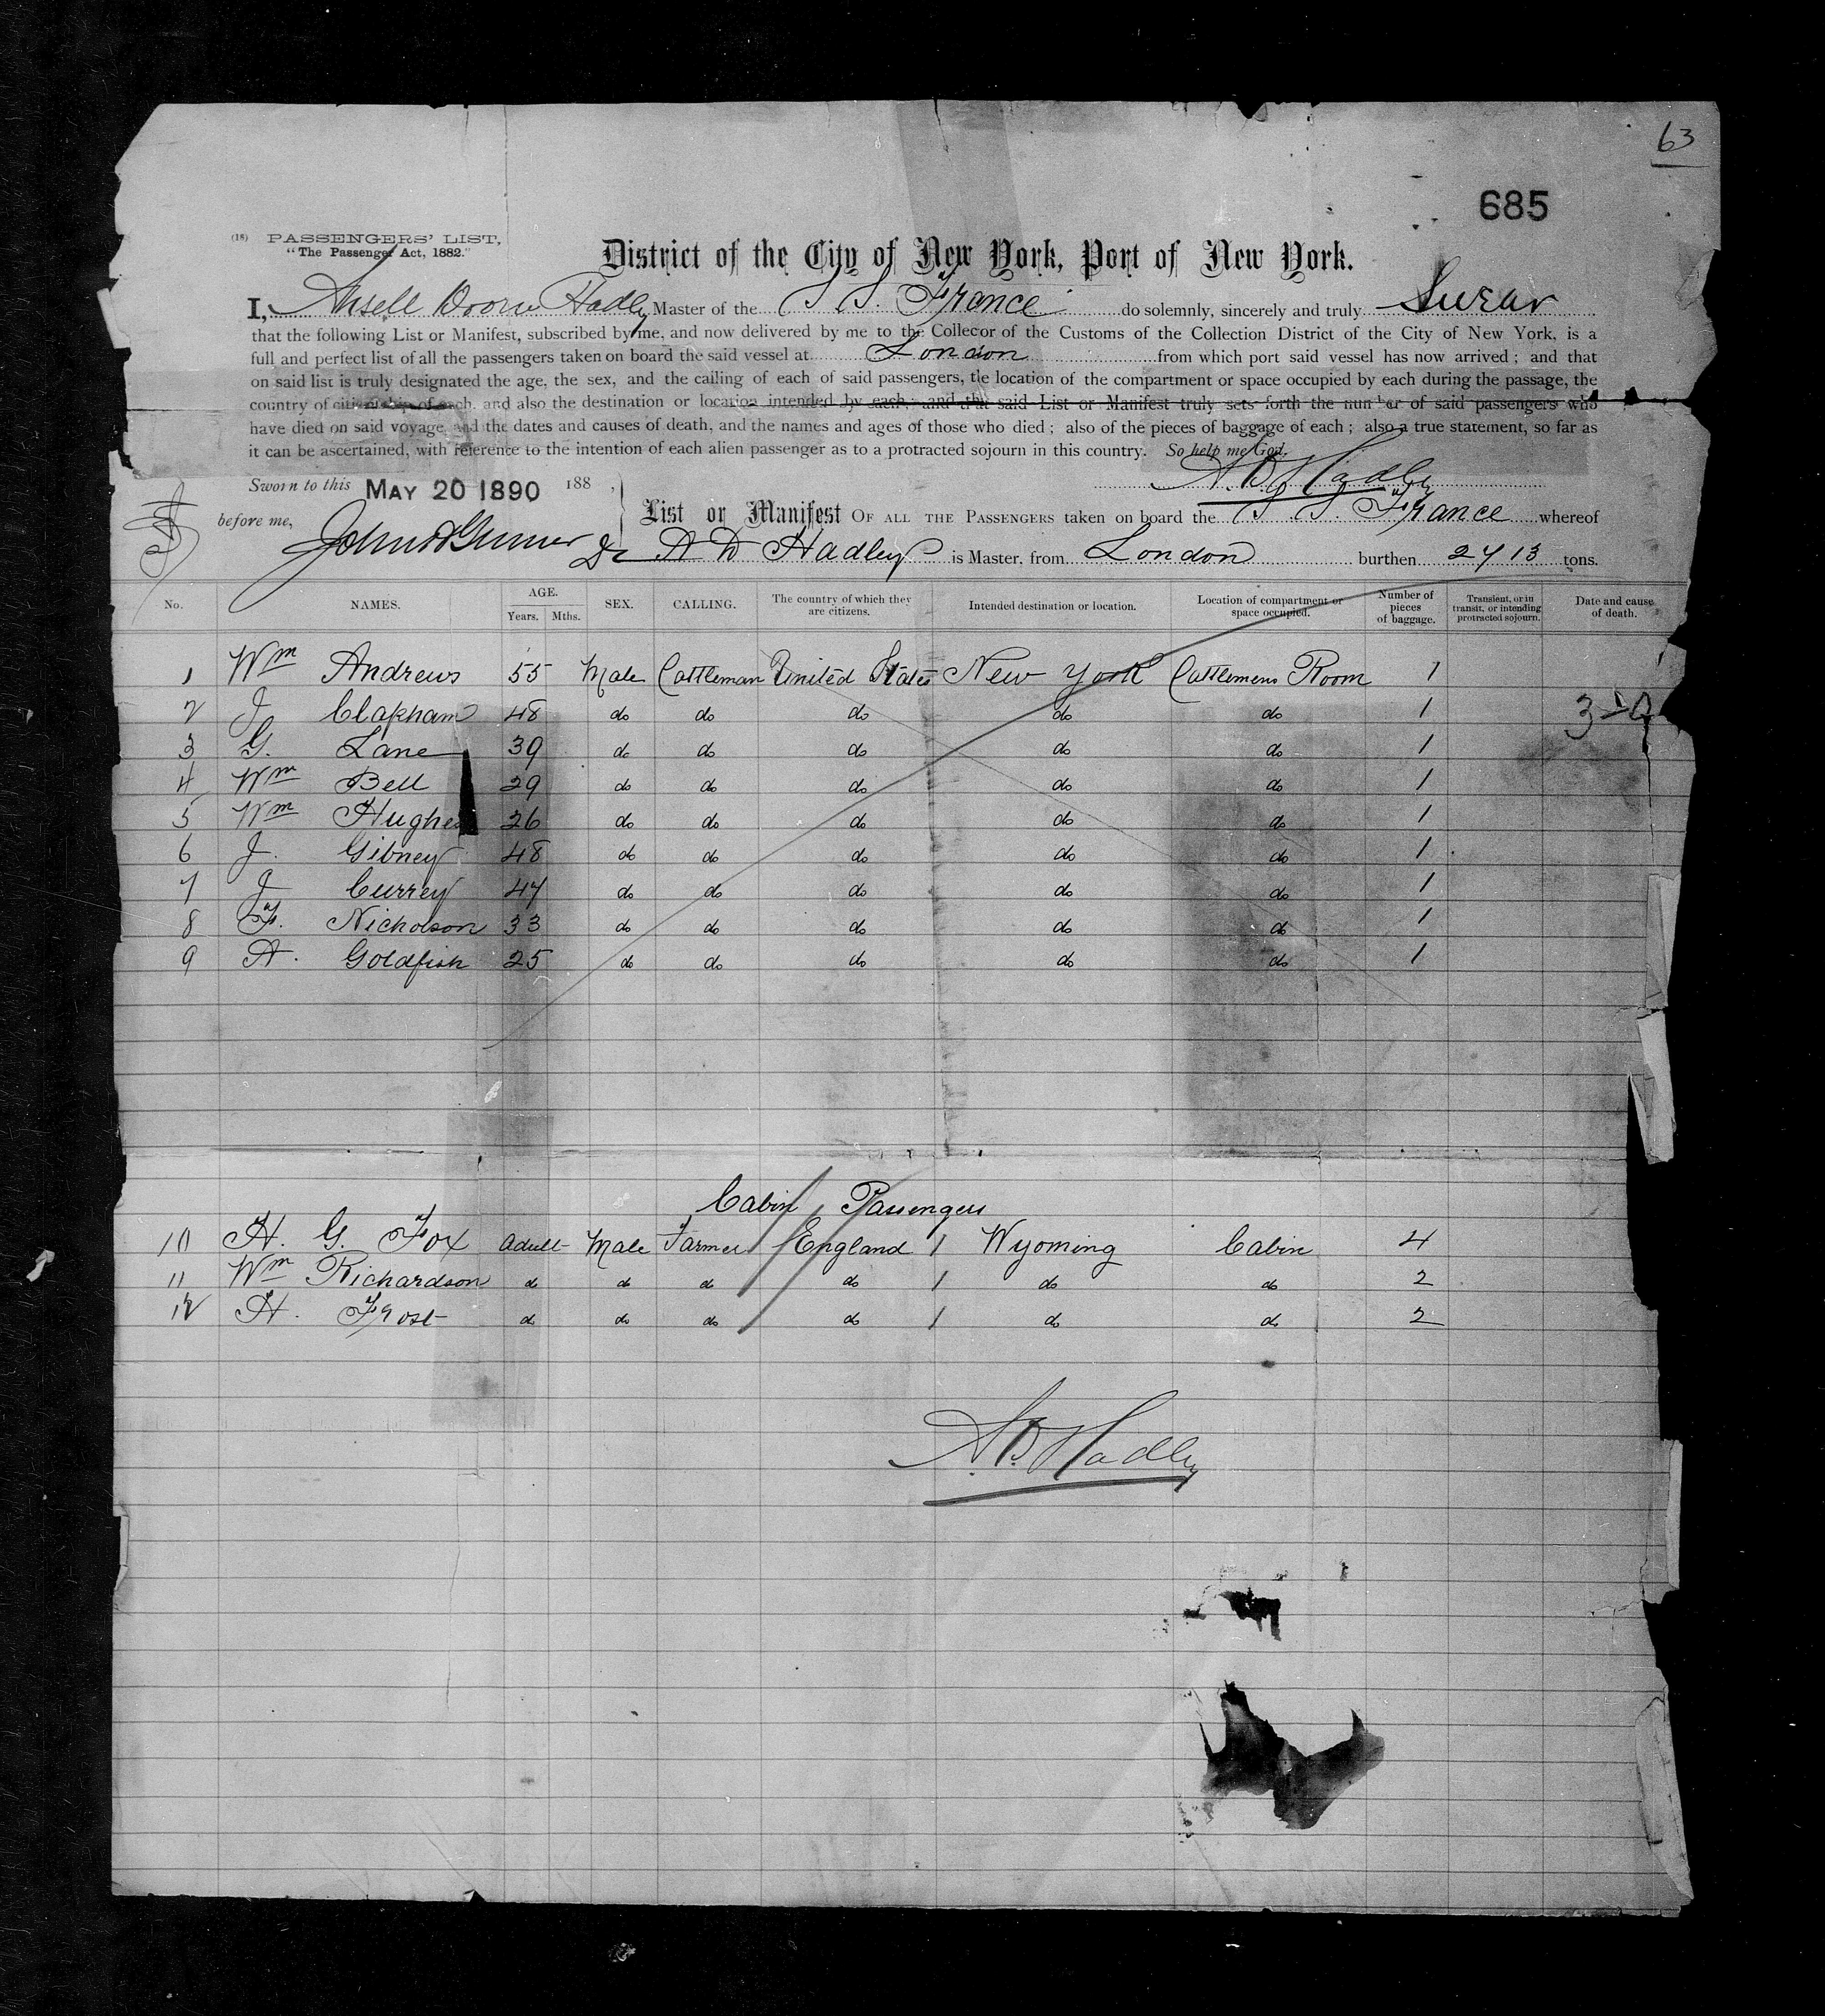 63
685
(18) PASSENGERS' LIST,
"The Passenger Act, 1882."
District of the City of New York, Port of New York.
I, Ansell Hadley Master of the S S. France do solemnly, sincerely and truly Swear
that the following List or Manifest, subscribed by me, and now delivered by me to the Collecor of the Customs of the Collection District of the City of New York, is a
full and perfect list of all the passengers taken on board the said vessel at London from which port said vessel has now arrived; and that
on said list is truly designated the age, the sex, and the calling of each of said passengers, the location of the compartment or space occupied by each during the passage, the
country of citizenship of each, and also the destination or location intended by each; and that said List or Manifest truly sets forth the number of said passengers who
have died on said voyage, and the dates and causes of death, and the names and ages of those who died; also of the pieces of baggage of each; also a true statement, so far as
it can be ascertained, with reference to the intention of each alien passenger as to a protracted sojourn in this country. So help me God.
A. D. Hadley
Sworn to this MAY 20 1890 188 ,
before me,
List or Manifest OF ALL THE PASSENGERS taken on board the S S. France whereof
A D Hadley is Master, from London burthen 2713 tons.
No. NAMES. AGE. Years. Mths. SEX. CALLING. The country of which they are citizens. Intended destination or location. Location of compartment or space occupied. Number of pieces of baggage. Transient, or in transit, or intending protracted sojourn. Date and cause of death.
1 Wm Andrews 55 Male Cattleman United States New York Cattlemens Room 1
2 J Clapham 48 do do do do do 1
3 G. Lane 39 do do do do do 1
4 Wm Bell 29 do do do do do 1
5 Wm Hughes 26 do do do do do 1
6 J. Gibney 48 do do do do do 1
7 J Currey 47 do do do do do 1
8 F. Nicholson 33 do do do do do 1
9 A. Goldfish 25 do do do do do 1
Cabin Passengers
10 H. G. Fox Adult Male Farmer England 1 Wyoming Cabin 4
11 Wm Richardson do do do do 1 do do 2
12 H. Frost do do do do 1 do do 2
A. D. Hadley